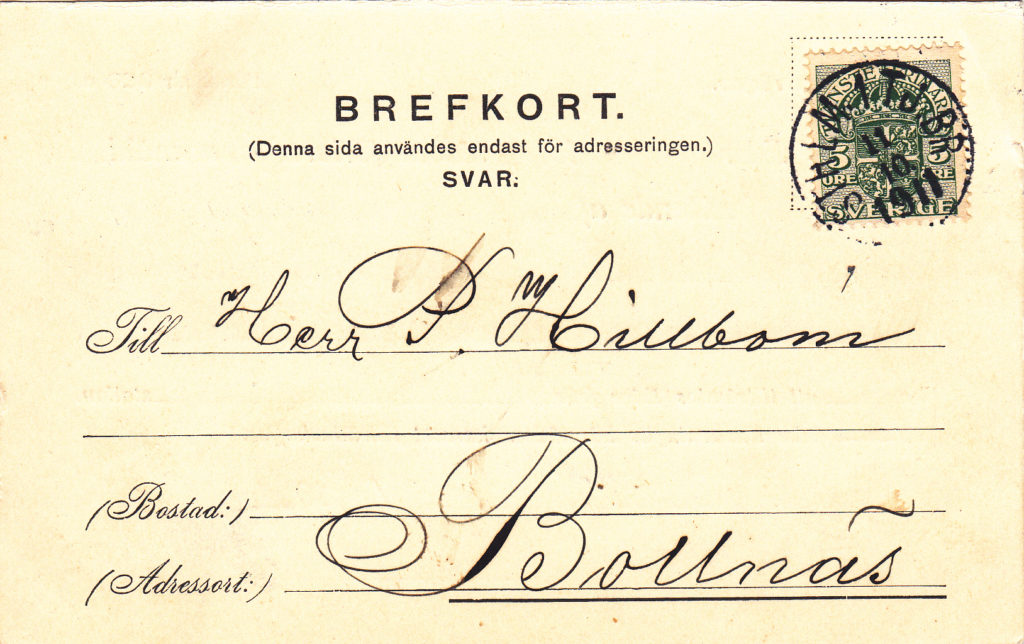 BREFKORT.
(Denna sida användes endast för adresseringen.)
SVAR:
TJENSTEFRIMÄRKE
5 5
ÖRE ÖRE
SVERIGE
11.
10.
1911
Till Herr P. Hillbom
(Bostad:)
(Adressort:) Bollnäs